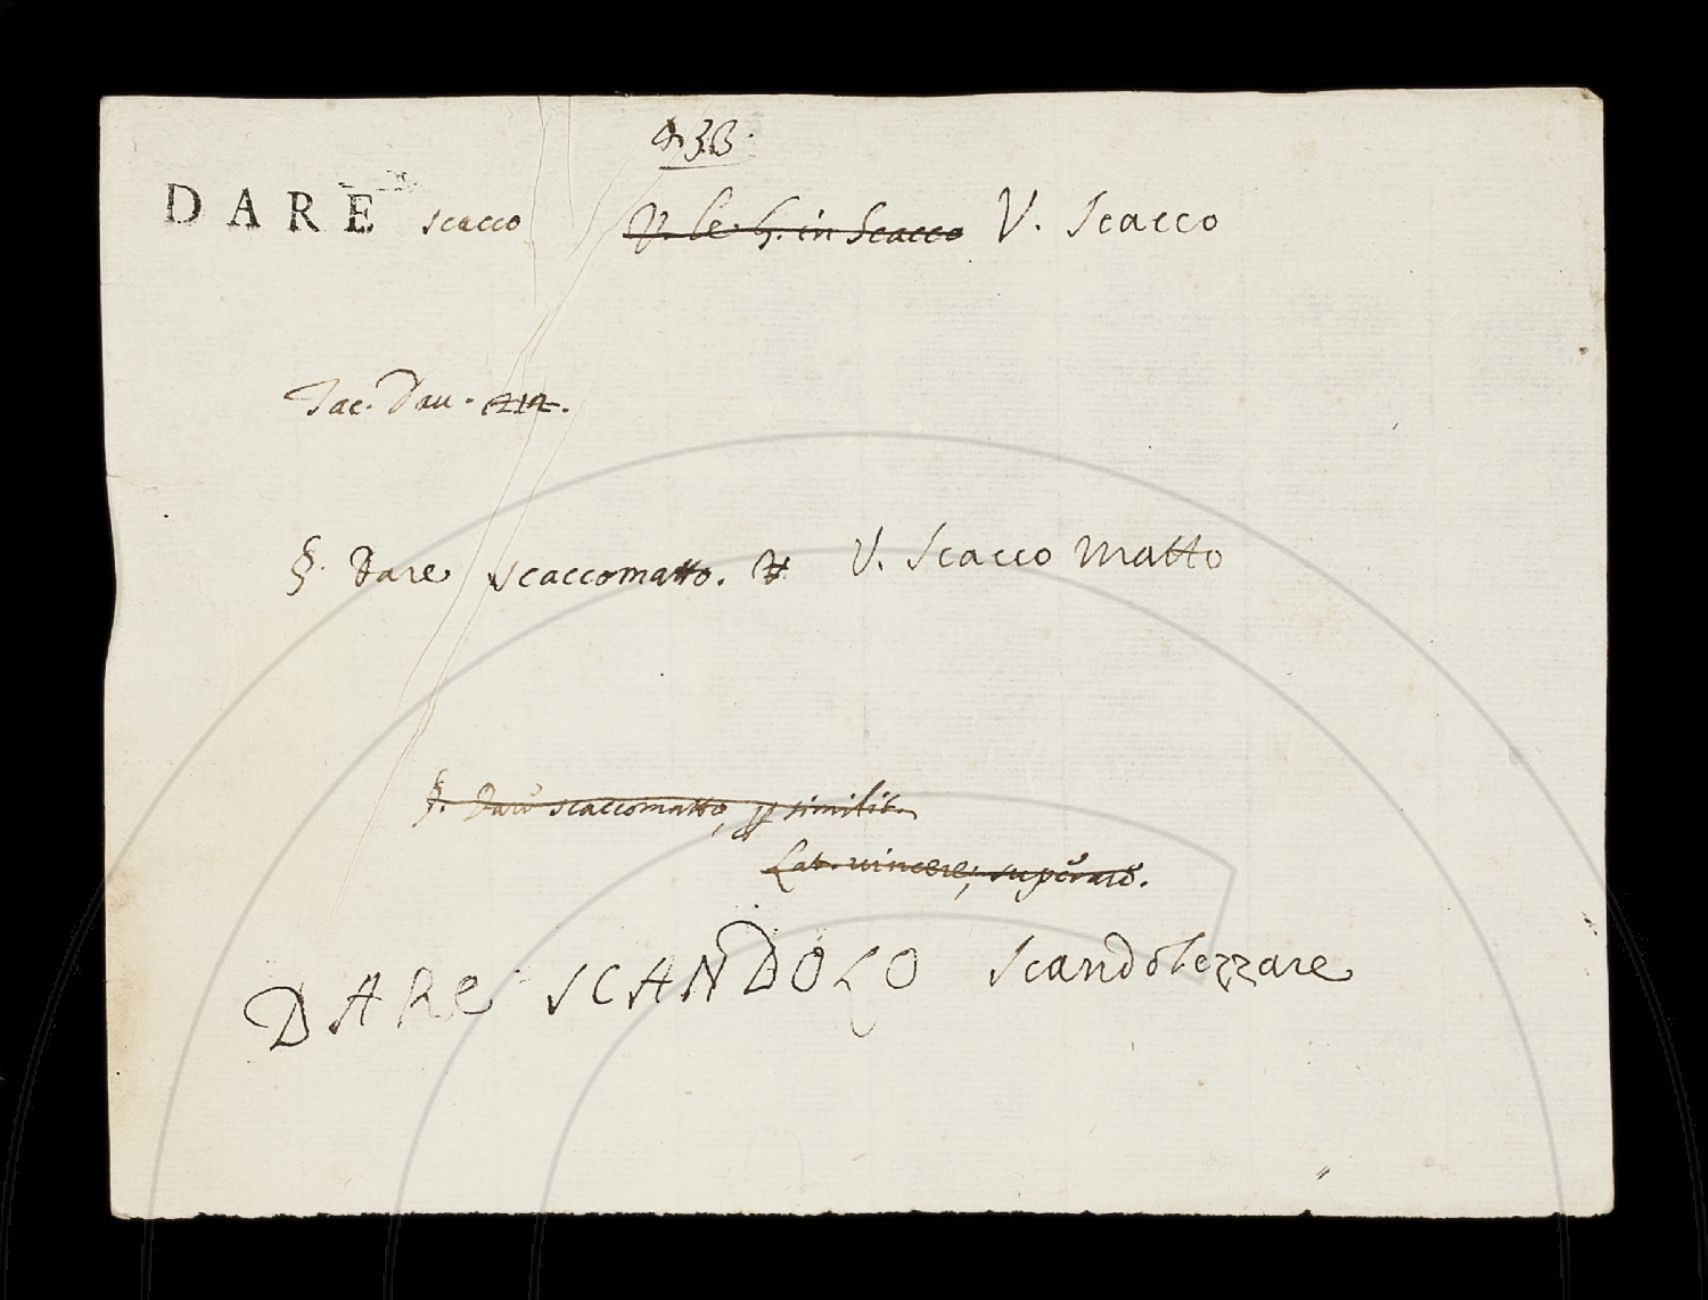 DARE scacco V. le G. in Scacco V. Scacco
Tac. Dav. 212.
§. Dare scaccomatto. V. V. Scacco Matto
§. Dare scaccomatto, similit.
Lat. vincere, superare.
DARE SCANDOLO Scandolezzare